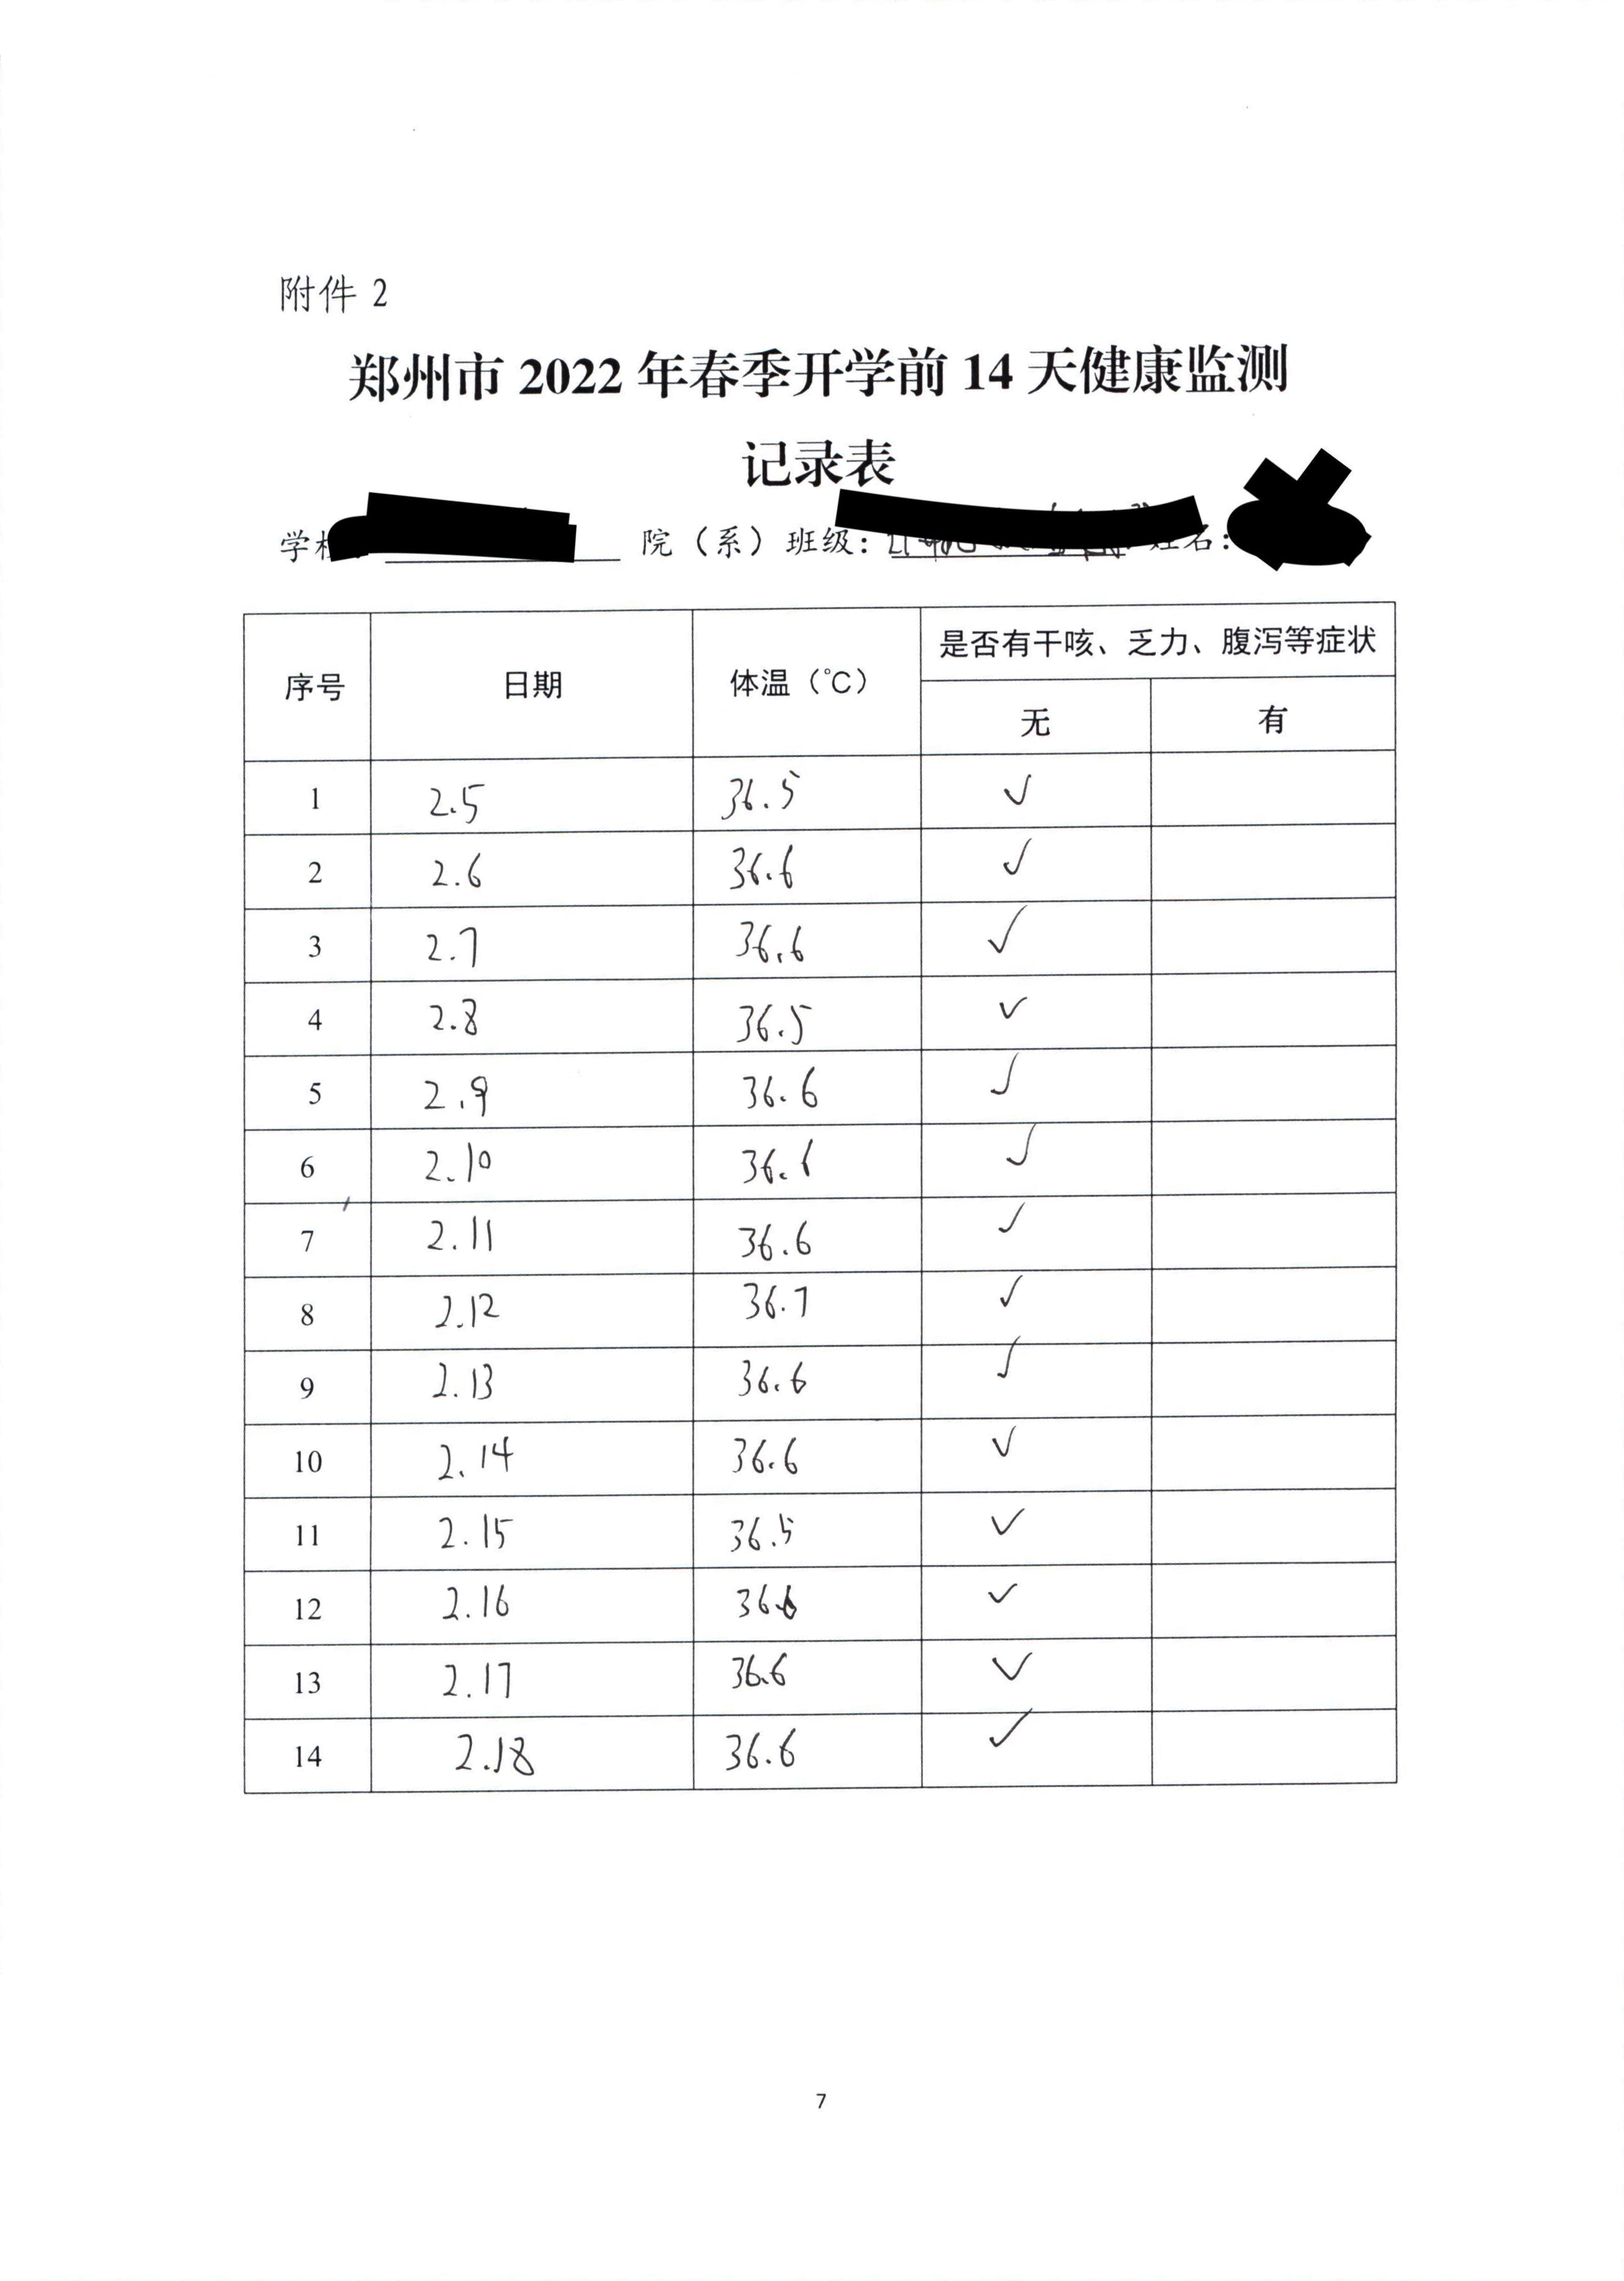 附件 2
郑州市 2022 年春季开学前 14 天健康监测
记录表
学 院（系）班级： 姓名：
序号 日期 体温（℃） 是否有干咳、乏力、腹泻等症状
无 有
1 2.5 36.5 ✓
2 2.6 36.6 ✓
3 2.7 36.6 ✓
4 2.8 36.5 ✓
5 2.9 36.6 ✓
6 2.10 36.6 ✓
7 2.11 36.6 ✓
8 2.12 36.7 ✓
9 2.13 36.6 ✓
10 2.14 36.6 ✓
11 2.15 36.5 ✓
12 2.16 36.6 ✓
13 2.17 36.6 ✓
14 2.18 36.6 ✓
7